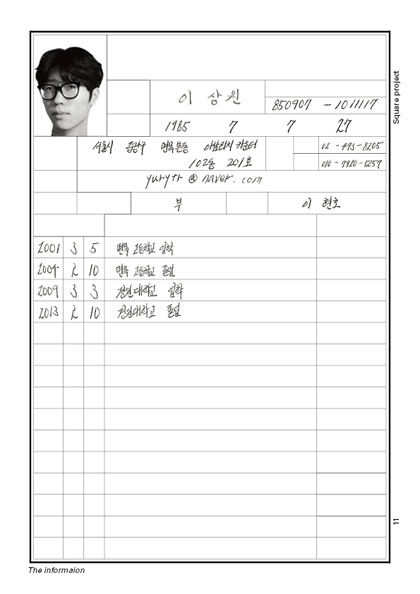 Square project
이 상원
850907 - 1011117
1985 7 7 27
서울시 중랑구 면목본동
102동 201호
yuryth @ naver. com
부 이 현호
2001 3 5 면목 고등학교 입학
2004 2 10 면목 고등학교 졸업
2009 3 3 대학교 입학
2013 2 10 대학교 졸업
11
The informaion